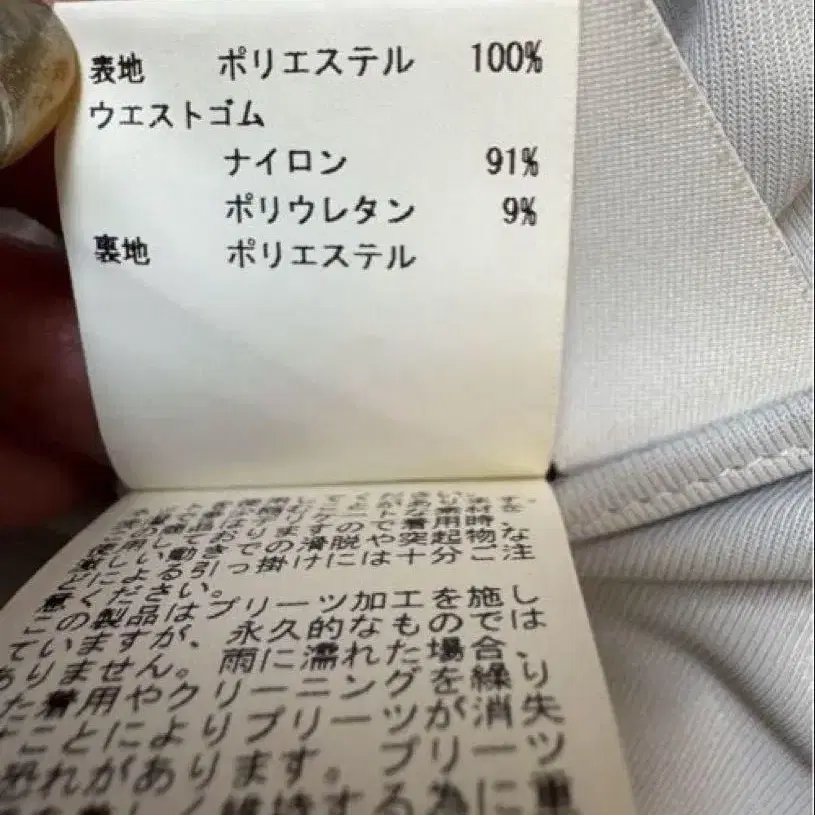 表地 ポリエステル 100%
ウエストゴム
ナイロン 91%
ポリウレタン 9%
裏地 ポリエステル
着用時
激しい動きでの滑脱や突起物な
どによる引っ掛けには十分ご注
意ください。
この製品はプリーツ加工を施し
ていますが、永久的なものでは
ありません。雨に濡れた場合、
た着用やクリーニングを繰り
ことによりプリーツが消失
恐れがあります。プリーツ
維持する為に重